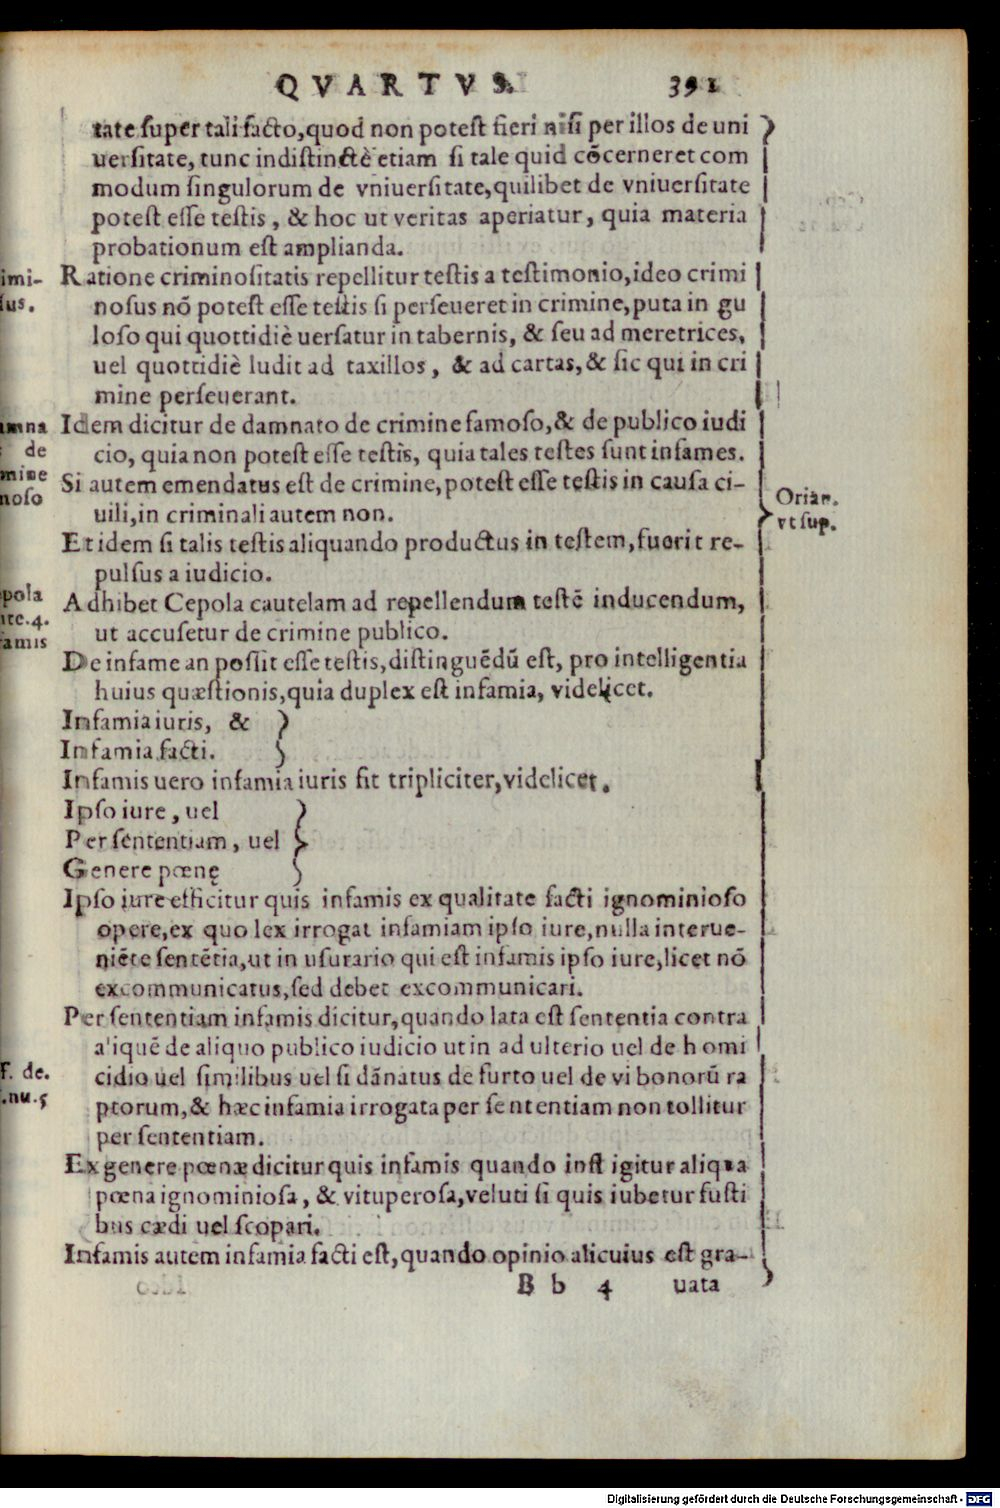 QVARTVS. 391
tate super tali facto, quod non potest fieri nisi per illos de uni
uersitate, tunc indistinctè etiam si tale quid cõcerneret com
modum singulorum de vniuersitate, quilibet de vniuersitate
potest esse testis, & hoc ut veritas aperiatur, quia materia
probationum est amplianda.
imi-
sus.
Ratione criminositatis repellitur testis a testimonio, ideo crimi
nosus nõ potest esse testis si perseueret in crimine, puta in gu
loso qui quottidiè uersatur in tabernis, & seu ad meretrices,
uel quottidiè ludit ad taxillos, & ad cartas, & sic qui in cri
mine perseuerant.
mna
de
mine
noso
Idem dicitur de damnato de crimine famoso, & de publico iudi
cio, quia non potest esse testis, quia tales testes sunt infames.
Si autem emendatus est de crimine, potest esse testis in causa ci-
uili, in criminali autem non.
Orian.
vt sup.
Et idem si talis testis aliquando productus in testem, fuerit re-
pulsus a iudicio.
pola
ute.4.
famis
Adhibet Cepola cautelam ad repellendum testẽ inducendum,
ut accusetur de crimine publico.
De infame an possit esse testis, distinguẽdũ est, pro intelligentia
huius quæstionis, quia duplex est infamia, videlicet.
Infamia iuris, & }
Infamia facti.
Infamis uero infamia iuris fit tripliciter, videlicet.
Ipso iure, uel }
Per sententiam, uel
Genere pœnę
Ipso iure efficitur quis infamis ex qualitate facti ignominioso
opere, ex quo lex irrogat infamiam ipso iure, nulla interue-
niẽte sentẽtia, ut in usurario qui est infamis ipso iure, licet nõ
excommunicatus, sed debet excommunicari.
Per sententiam infamis dicitur, quando lata est sententia contra
a'iquẽ de aliquo publico iudicio ut in ad ulterio uel de homi
f. de.
.nu.5
cidio uel similibus uel si dãnatus de furto uel de vi bonorũ ra
ptorum, & hæc infamia irrogata per sententiam non tollitur
per sententiam.
Ex genere pœnæ dicitur quis infamis quando inst igitur aliqua
pœna ignominiosa, & vituperosa, veluti si quis iubetur fusti
bus cædi uel scopari.
Infamis autem infamia facti est, quando opinio alicuius est gra-
B b 4 uata
Digitalisierung gefördert durch die Deutsche Forschungsgemeinschaft - DFG